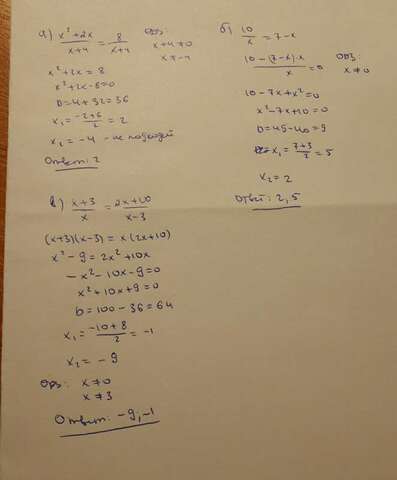 а) x²+2x/x+4 = 8/x+4 ОДЗ:
x+4≠0
x≠-4
x²+2x=8
x²+2x-8=0
D=4+32=36
x₁=-2+6/2=2
x₂=-4 - не подходит
Ответ: 2
б) 10/x=7-x
10-(7-x)·x/x=0 ОДЗ:
x≠0
10-7x+x²=0
x²-7x+10=0
D=49-40=9
x₁=7+3/2=5
x₂=2
Ответ: 2,5
в) x+3/x = 2x+10/x-3
(x+3)(x-3)=x(2x+10)
x²-9=2x²+10x
-x²-10x-9=0
x²+10x+9=0
D=100-36=64
x₁=-10+8/2=-1
x₂=-9
ОДЗ: x≠0
x≠3
Ответ: -9,-1